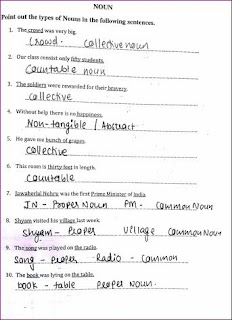 NOUN
Point out the types of Nouns in the following sentences.
1. The crowd was very big.
Crowd - Collective noun
2. Our class consist only fifty students.
Countable noun
3. The soldiers were rewarded for their bravery.
Collective
4. Without help there is no happiness.
Non-tangible / Abstract
5. He gave me bunch of grapes.
Collective
6. This room is thirty feet in length.
Countable
7. Jawaherlal Nehru was the first Prime Minister of India
JN - Proper Noun PM - Common Noun
8. Shyam visited his village last week.
Shyam - Proper Village Common Noun
9. The song was played on the radio.
Song - Proper Radio - Common
10. The book was lying on the table.
book - table Proper Noun.